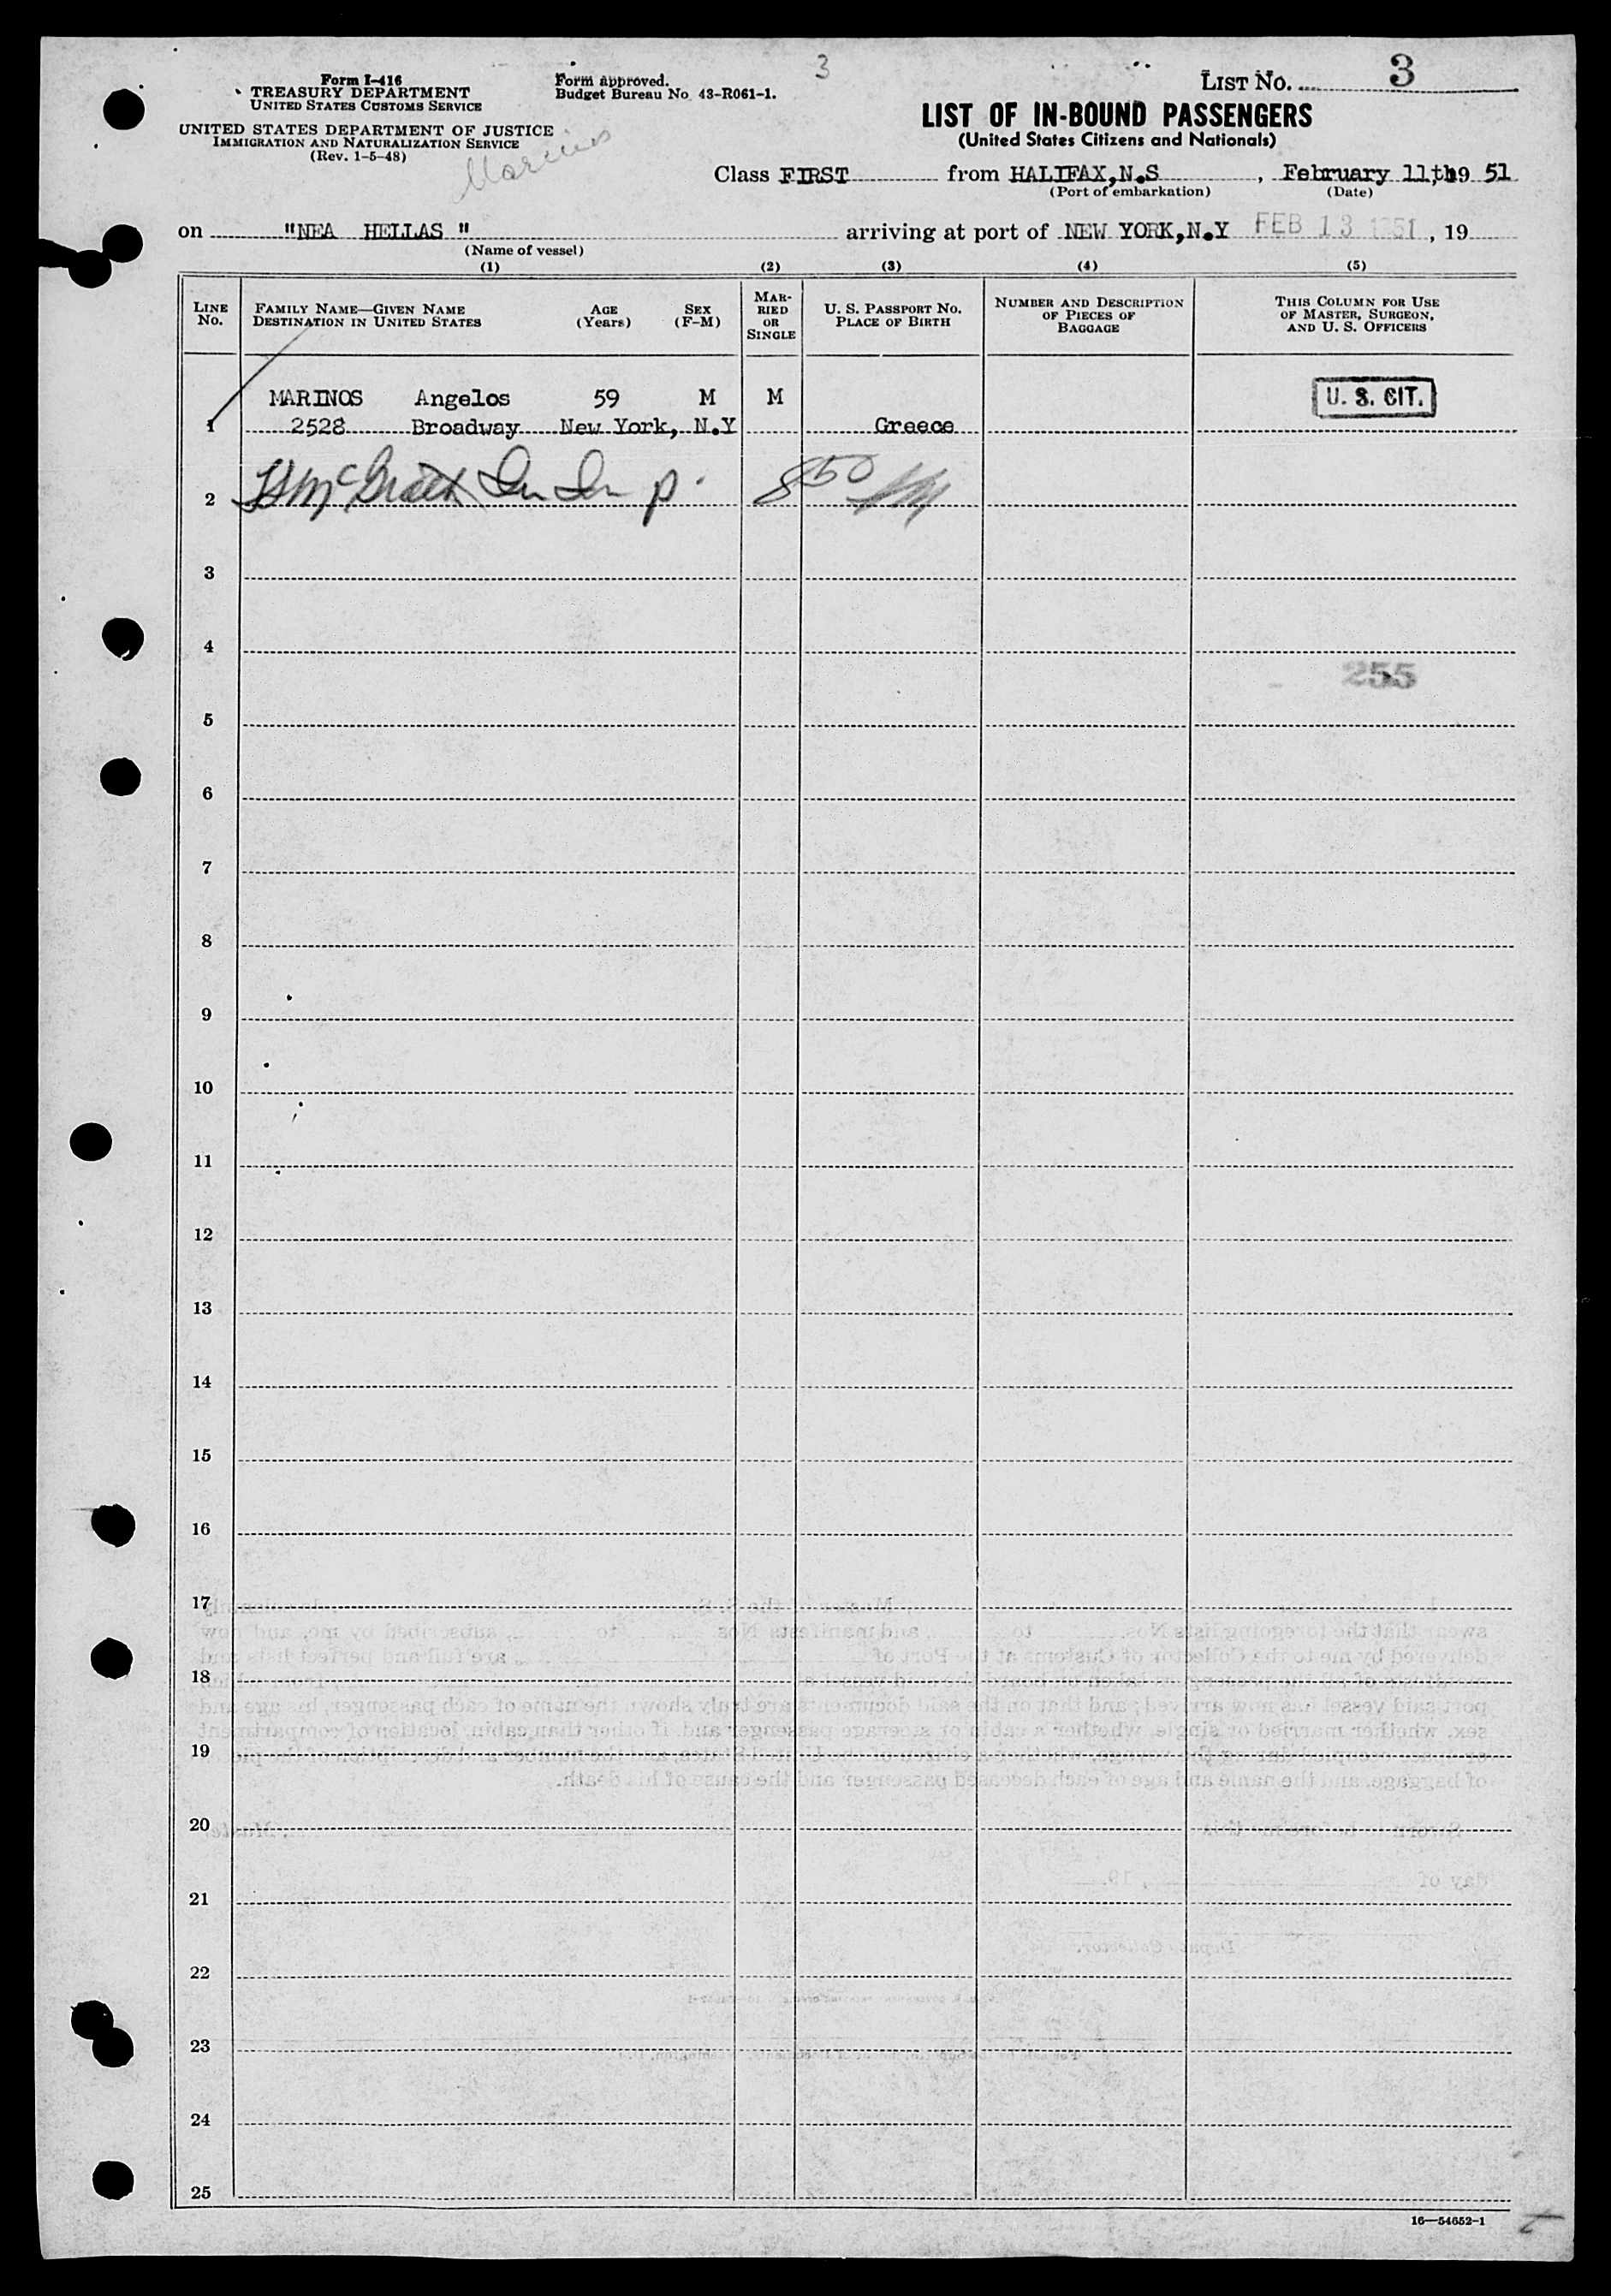 3
Form I-416
TREASURY DEPARTMENT
UNITED STATES CUSTOMS SERVICE
UNITED STATES DEPARTMENT OF JUSTICE
IMMIGRATION AND NATURALIZATION SERVICE
(Rev. 1-5-48)
Marinos
Form approved.
Budget Bureau No. 43-R061-1.
LIST NO. 3
LIST OF IN-BOUND PASSENGERS
(United States Citizens and Nationals)
Class FIRST from HALIFAX,N.S , February 11th 19 51
(Port of embarkation) (Date)
on "NEA HELLAS " arriving at port of NEW YORK,N.Y FEB 13 1951 , 19
(Name of vessel)
(1) (2) (3) (4) (5)
LINE No. FAMILY NAME—GIVEN NAME DESTINATION IN UNITED STATES AGE (Years) SEX (F-M) MARRIED OR SINGLE U. S. PASSPORT NO. PLACE OF BIRTH NUMBER AND DESCRIPTION OF PIECES OF BAGGAGE THIS COLUMN FOR USE OF MASTER, SURGEON, AND U. S. OFFICERS
MARINOS Angelos 59 M M U. S. CIT.
1 2528 Broadway New York, N.Y Greece
2 McGrath 850
3
4
255
5
6
7
8
9
10
11
12
13
14
15
16
17
18
19
20
21
22
23
24
25
16—54652-1